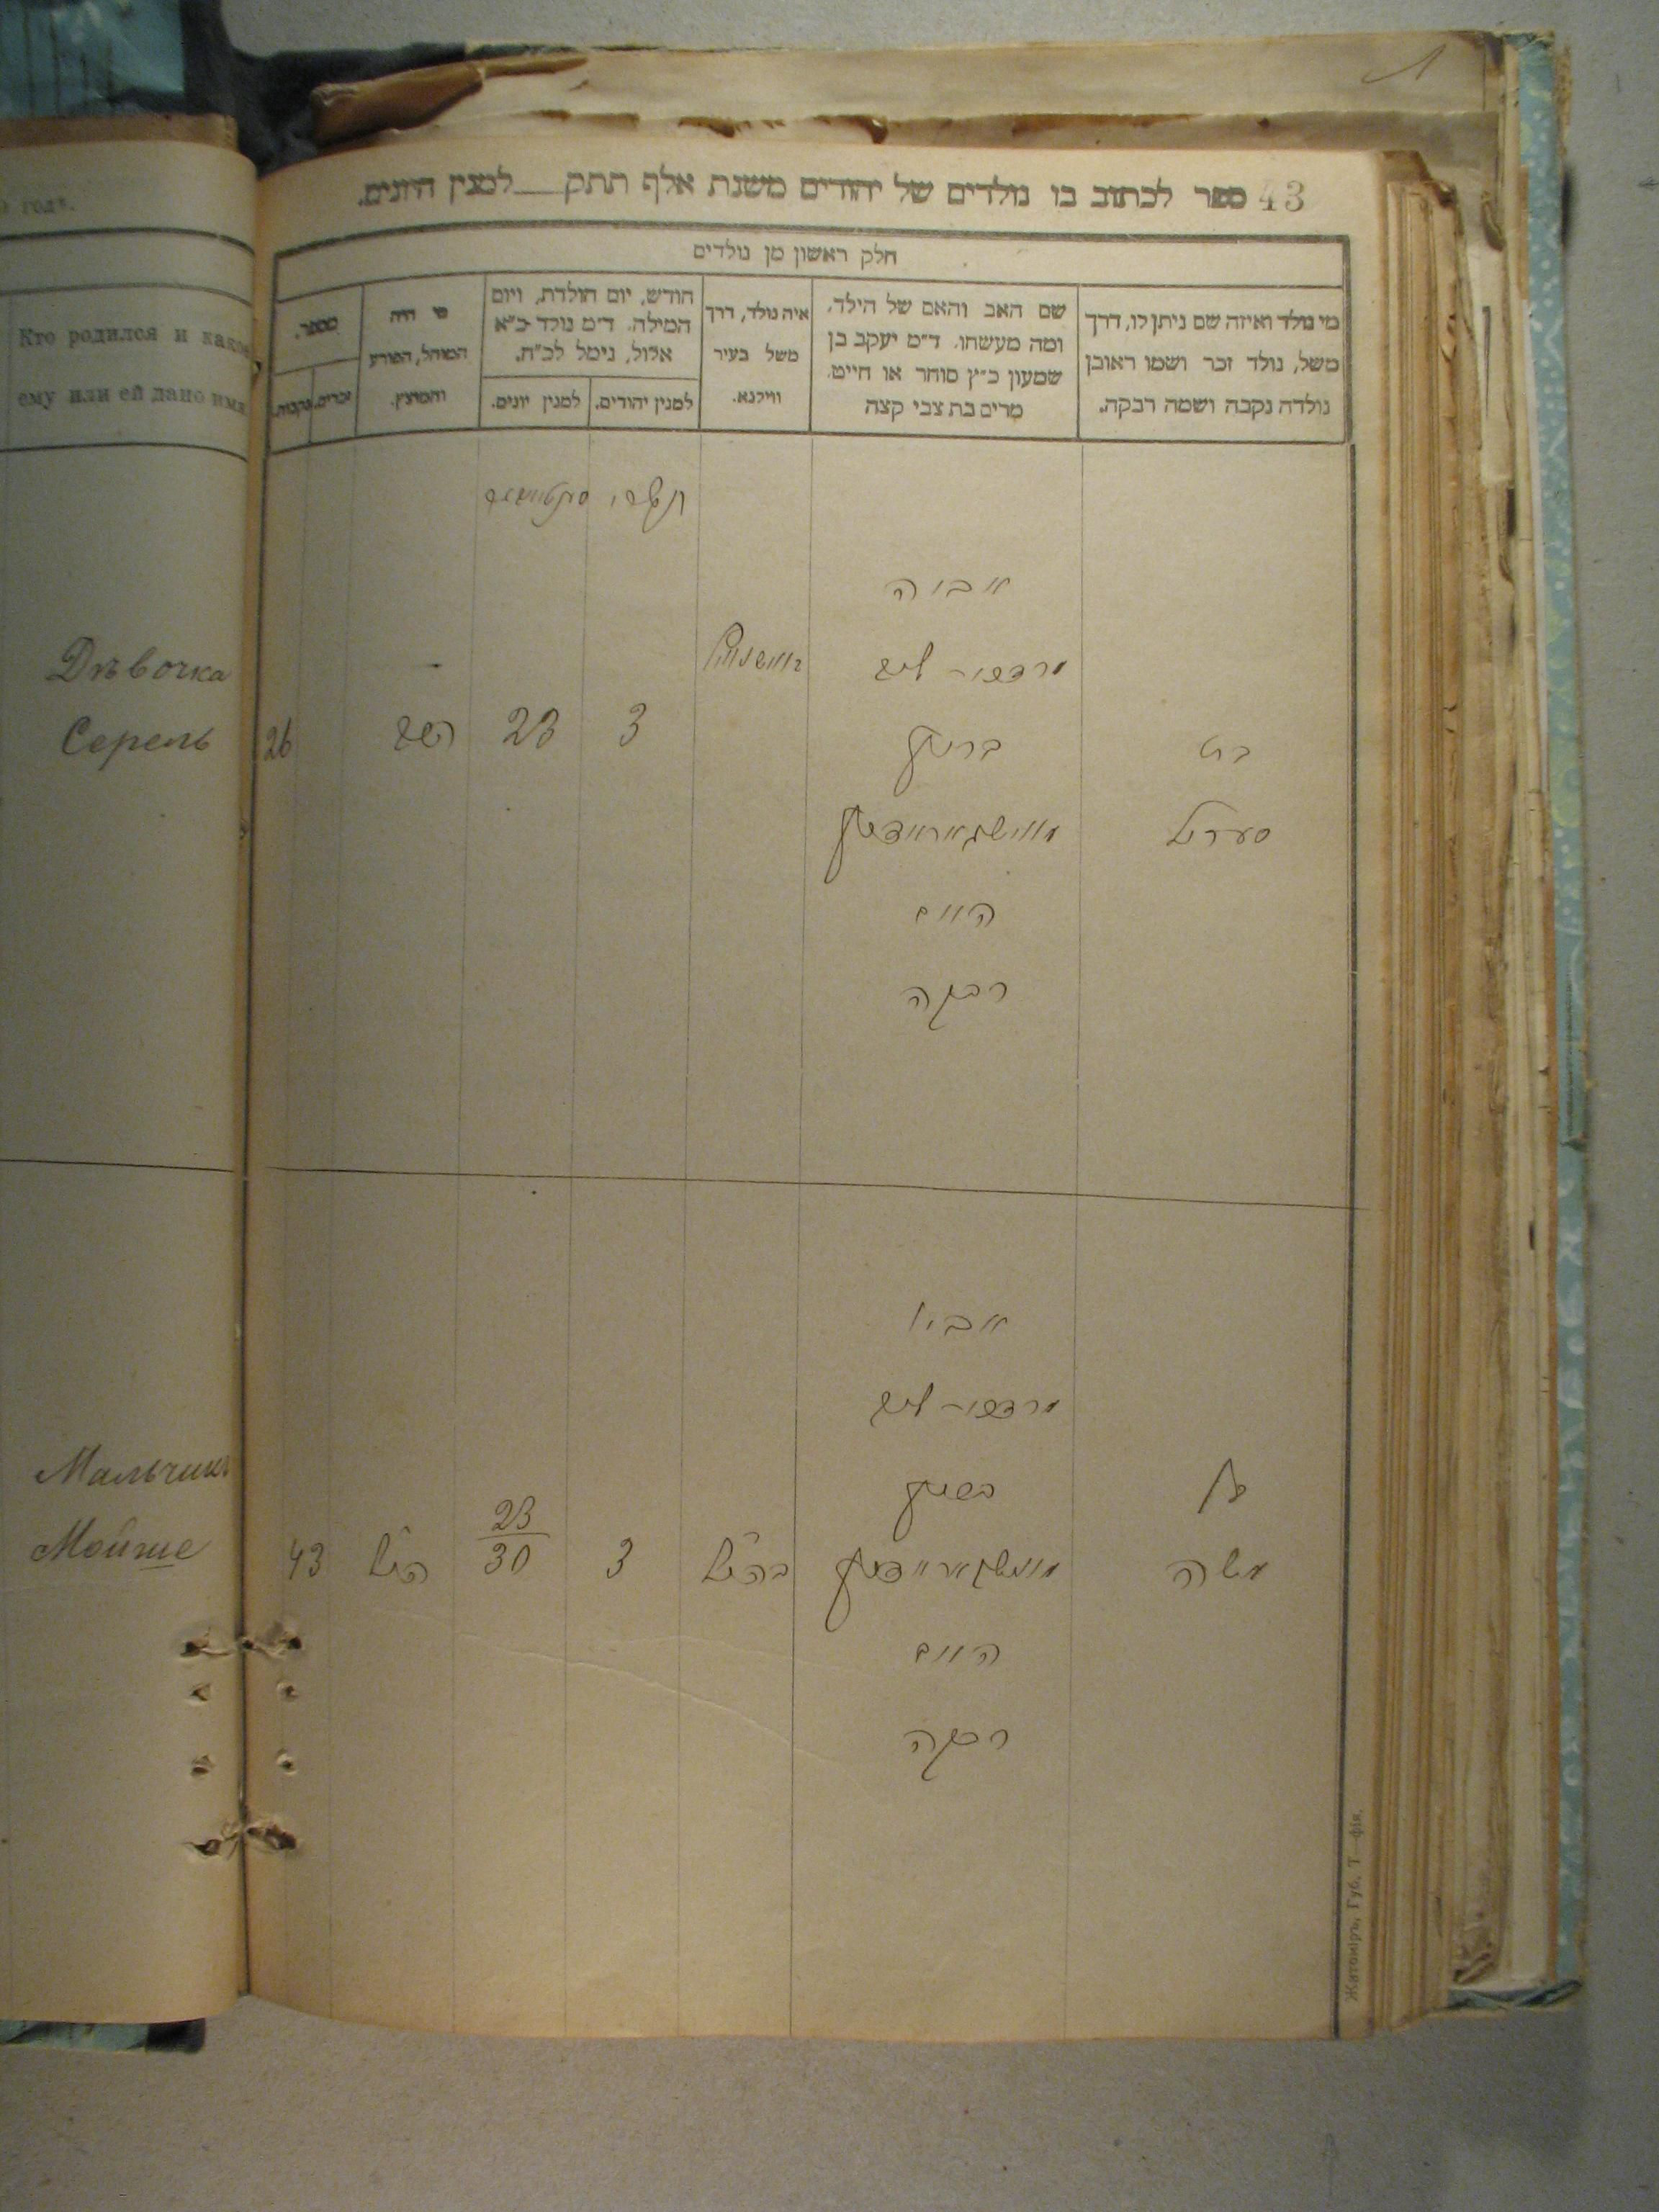 43 ספר לכתוב בו נולדים של יהודים משנת אלף תתק למנין היונים.
חלק ראשון מן נולדים
מי נולד ואיזה שם ניתן לו, דרך
משל, נולד זכר ושמו ראובן
נולדה נקבה ושמה רבקה.
שם האב והאם של הילד,
ומה מעשהו. ד״מ יעקב בן
שמעון כ״ץ סוחר או חייט.
מרים בת צבי קצה
איה נולד, דרך
משל בעיר
ווילנא.
חודש, יום הולדת, ויום
המילה. ד״מ נולד כ״א
אלול, נימל לכ״ח.
למנין יהודים.
למנין יונים.
מי היה
המוהל, הפורע
והמוצץ.
מספר.
זכרים.
נקבות.
годъ.
Кто родился и какое
ему или ей дано имя
תשרי
אביה
Дѣвочка
Серель
26
23
3
בת
סערל
האם
רבקה
אביו
Мальчикъ
Мойше
43
23
30
3
בן
משה
האם
רבקה
Житоміръ, Губ. Т—фія.